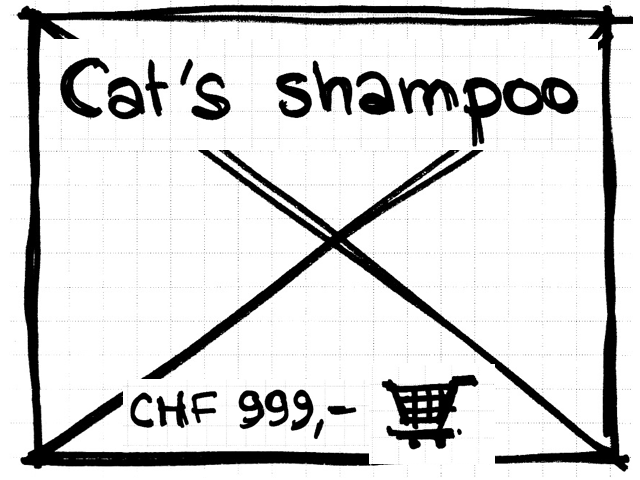 Cat's shampoo
CHF 999,-